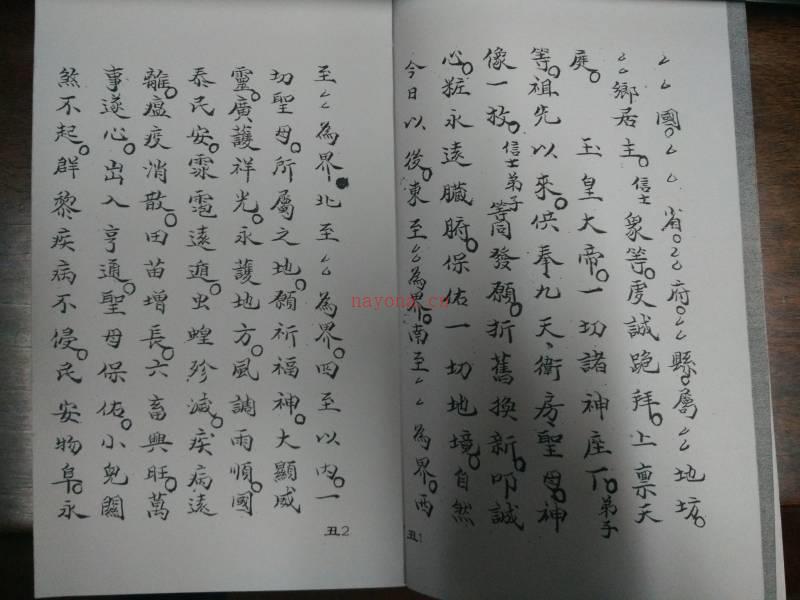 厶厶國。厶厶省。厶厶府。厶厶縣。屬厶厶地坊。
厶厶鄉居主。信士眾等。虔誠跪拜。上稟天
庭。玉皇大帝。一切諸神座下。弟子
等。祖先以來。供奉九天衛房聖母。神
像一放。信士弟子等同發愿。折舊換新。叩誠
心。粧永遠臟腑。保佑一切地境。自然
今日以後。東至厶厶為界。南至厶厶為界。西
丑1
至厶厶為界。北至厶厶為界。四至以內。一
切聖母。所屬之地。願祈福神。大顯威
靈。廣護祥光。永護地方。風調雨順。國
泰民安。霂雹遠遁。虫蝗殄滅。疾病遠
離。瘟疫消散。田苗增長。六畜興旺。萬
事遂心。出入亨通。聖母保佑。小兒關
煞不起。群黎疾病不侵。民安物阜。永
丑2
nayona.cn